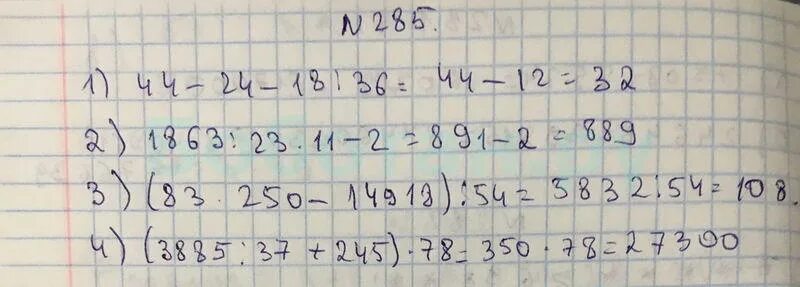 N 285.
1) 44 - 24 - 18 : 36 = 44 - 12 = 32
2) 1863 : 23 · 11 - 2 = 891 - 2 = 889
3) (83 · 250 - 14918) : 54 = 5832 : 54 = 108.
4) (3885 : 37 + 245) · 78 = 350 · 78 = 27300